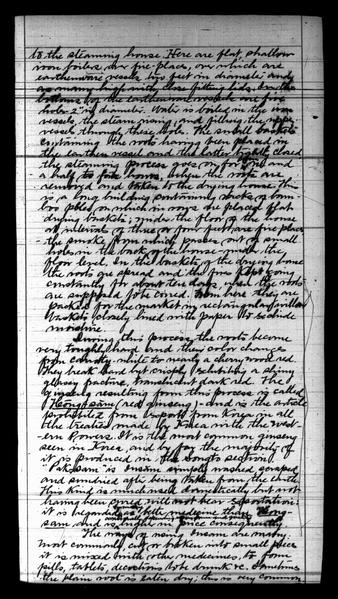 to the steaming house. Here are flat, shallow
iron boilers, over fire-places, over which are
earthenware vessels two feet in diameter and
as many high with close fitting lids. In the
bottoms of the earthenware vessels are five
holes 2" in diameter. Water is boiled in the iron
vessels, the steam rising, and filling the upper
vessels through these holes. The small baskets
containing the roots having been placed in
the earthen vessel and the latter tightly closed
the steaming process goes on for one and
a half to four hours. When the roots are
removed and taken to the drying house, this
is a long building containing racks of bam-
boo poles on which in rows are placed flat
drying baskets; under the floor of the house
at intervals of three or four feet are fire places
the smoke from which passes out of small
holes in the back of the house under the
floor level. In the baskets of the drying house
the roots are spread and the fires kept going
constantly for about ten days, when the roots
are supposed to be cured. From here they are
packed for the market in rectangular willow
baskets closely lined with paper to exclude
moisture.
During this process the roots become
very tough & hard and their color changes
from white to nearly a cherry wood red
they break hard but crisply, exhibiting a shiny
glassy fracture, translucent dark red. The
ginseng resulting from this process is called
Hong-sam (red ginseng) and is the article
prohibited from export from Korea in all
the treaties made by Korea with the West-
ern Powers. It is the most common ginseng
seen in Korea, and by far the majority of
it is produced in the Songto section.
"Paksam" is insam simply washed scraped
and sundried after being taken from the earth
This kind is much used domestically but not
having been cured will not bear exportation
it is regarded as better medicine than Hong-
sam and is higher in price consequently
The ways of using insam are many:
most commonly, cut or broken into small pieces
it is mixed with other medicines, to form
pills, tablets, decoctions to be drunk &c. Sometimes
the plain root is eaten dry; this is very common